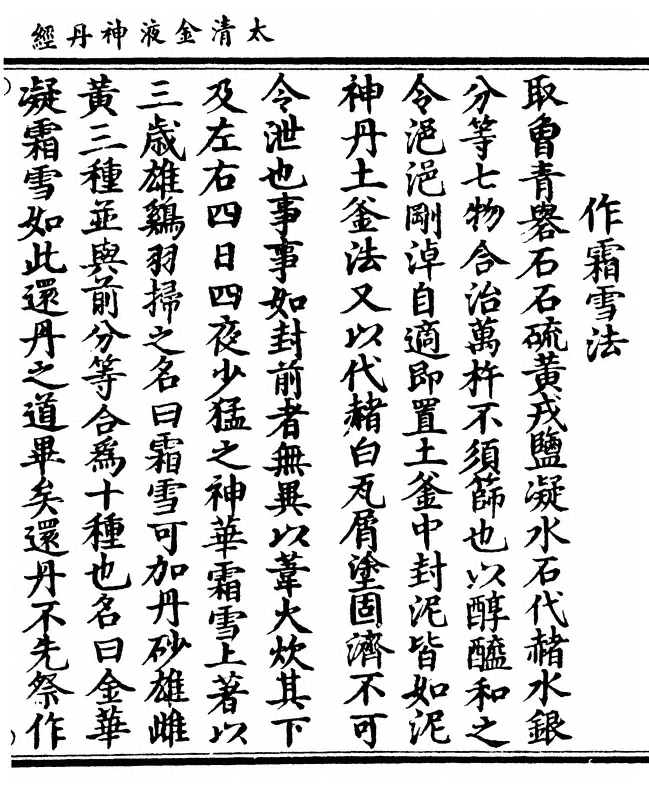 太清金液神丹經
作霜雪法
取曾青礜石石硫黃戎鹽凝水石代赭水銀
分等七物合治萬杵不須篩也以醇醯和之
令浥浥剛淖自適即置土釜中封泥皆如泥
神丹土釜法又以代赭白瓦屑塗固濟不可
令泄也事事如封前者無異以葦火炊其下
及左右四日四夜少猛之神華霜雪上著以
三歳雄鷄羽掃之名曰霜雪可加丹砂雄雌
黃三種並與前分等合爲十種也名曰金華
凝霜雪如此還丹之道畢矣還丹不先祭作